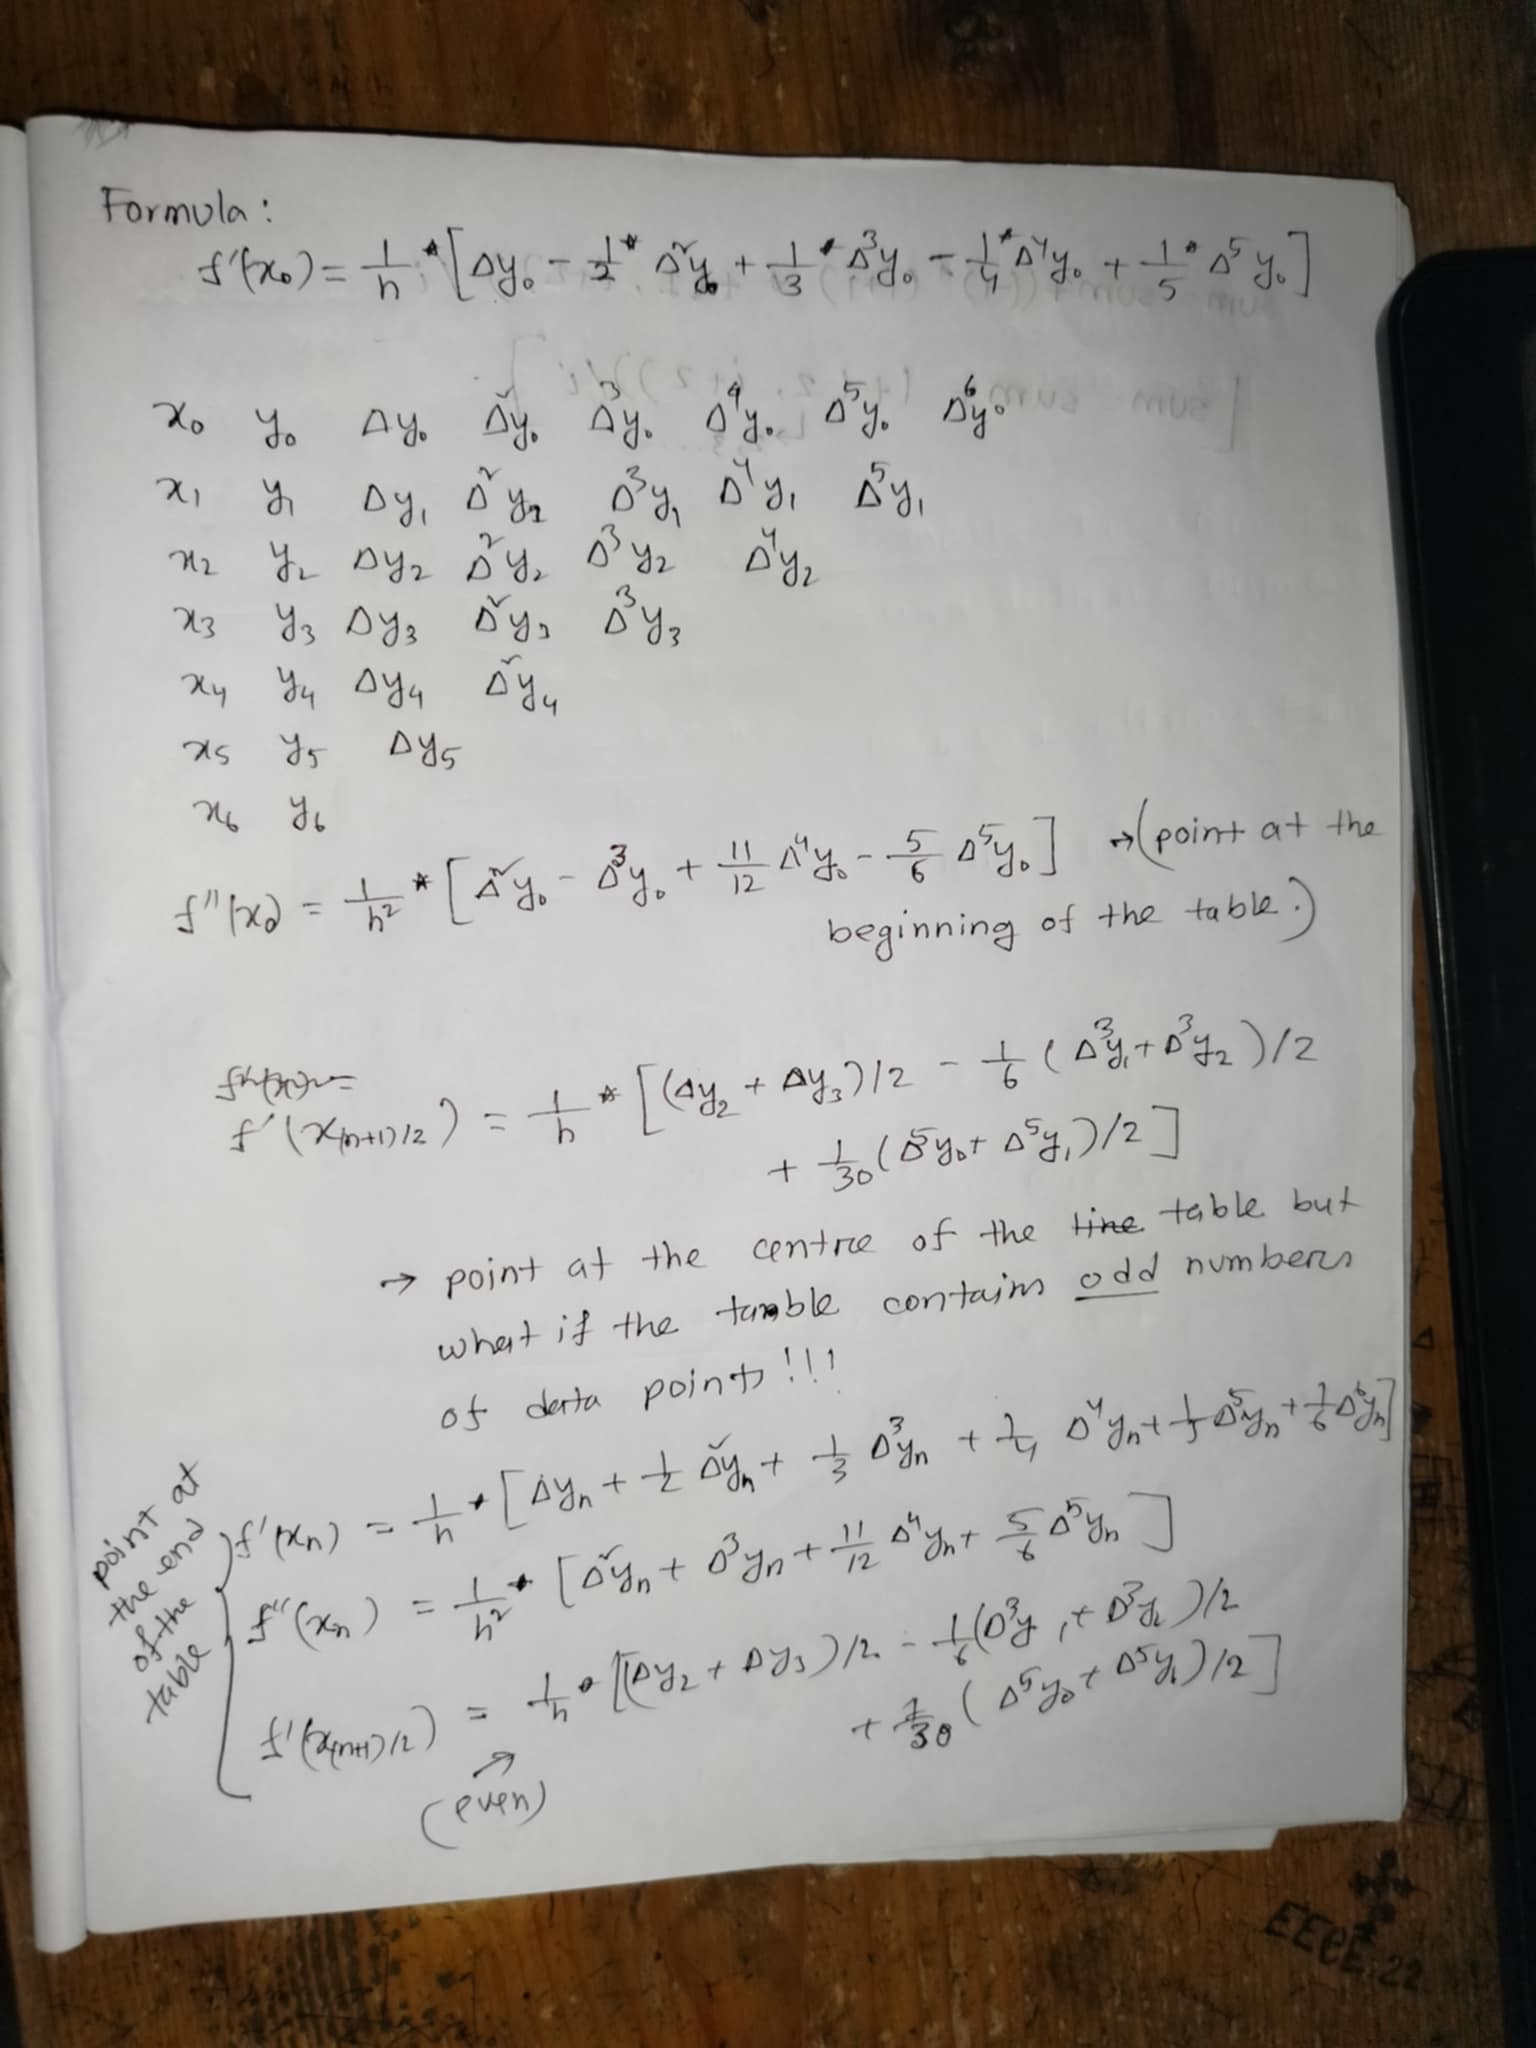 Formula:
f'(x₀) = 1/h * [Δy₀ - 1/2 * Δ²y₀ + 1/3 * Δ³y₀ - 1/4 * Δ⁴y₀ + 1/5 * Δ⁵y₀]
x₀ y₀ Δy₀ Δ²y₀ Δ³y₀ Δ⁴y₀ Δ⁵y₀ Δ⁶y₀
x₁ y₁ Δy₁ Δ²y₁ Δ³y₁ Δ⁴y₁ Δ⁵y₁
x₂ y₂ Δy₂ Δ²y₂ Δ³y₂ Δ⁴y₂
x₃ y₃ Δy₃ Δ²y₃ Δ³y₃
x₄ y₄ Δy₄ Δ²y₄
x₅ y₅ Δy₅
x₆ y₆
f''(x₀) = 1/h² * [Δ²y₀ - Δ³y₀ + 11/12 Δ⁴y₀ - 5/6 Δ⁵y₀] → (point at the
beginning of the table.)
f'(x(n+1)/2) = 1/h * [(Δy₂ + Δy₃)/2 - 1/6 (Δ³y₁ + Δ³y₂)/2
+ 1/30 (Δ⁵y₀ + Δ⁵y₁)/2]
→ point at the centre of the line table but
what if the table contains odd numbers
of data points!!!
point at
the end
of the
table
f'(xₙ) = 1/h * [Δyₙ + 1/2 Δ²yₙ + 1/3 Δ³yₙ + 1/4 Δ⁴yₙ + 1/5 Δ⁵yₙ + 1/6 Δ⁶yₙ]
f''(xₙ) = 1/h² * [Δ²yₙ + Δ³yₙ + 11/12 Δ⁴yₙ + 5/6 Δ⁵yₙ]
f'(x(n+1)/2) = 1/h * [(Δy₂ + Δy₃)/2 - 1/6 (Δ³y₁ + Δ³y₂)/2
+ 1/30 (Δ⁵y₀ + Δ⁵y₁)/2]
(even)
EECE-22